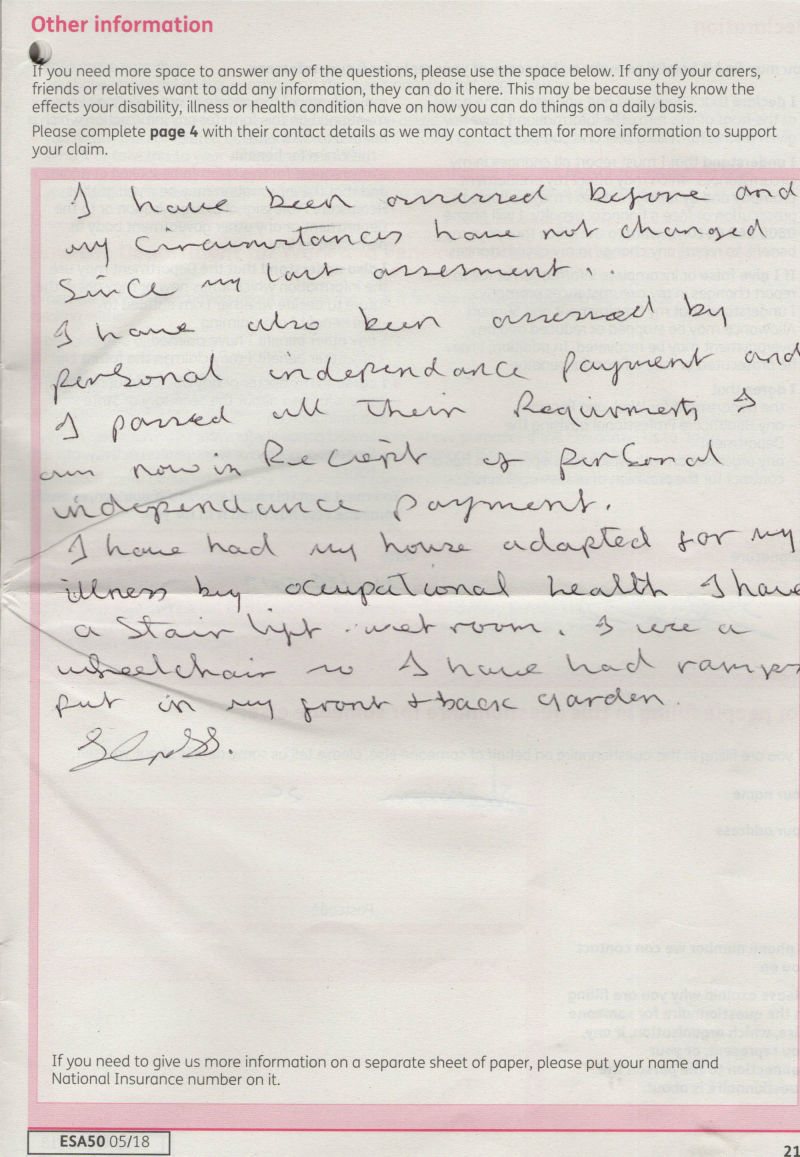 Other information
If you need more space to answer any of the questions, please use the space below. If any of your carers,
friends or relatives want to add any information, they can do it here. This may be because they know the
effects your disability, illness or health condition have on how you can do things on a daily basis.
Please complete page 4 with their contact details as we may contact them for more information to support
your claim.
I have been assessed before and
my circumstances have not changed
since my last assesment..
I have also been assessed by
personal independance payment and
I passed all their Requirments I
am now in Reciept of personal
independance payment.
I have had my house adapted for my
illness by occupational health I have
a Stair lift . wet room. I use a
wheelchair so I have had ramps
put in my front + back garden.
If you need to give us more information on a separate sheet of paper, please put your name and
National Insurance number on it.
ESA50 05/18
21